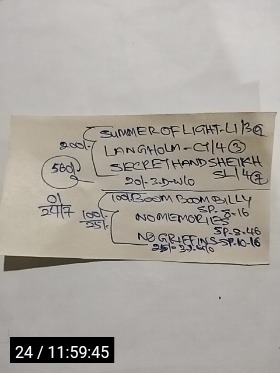 SUMMER OF LIGHT-LI/3
200/-
LANGHOLM-CY/4 ③
560/-
SECRETHANDSHEIKH
SL/4 ⑦
20/-3.D-W/O
01
24/7
100/-
25/-
100/BOOM BOOM BILLY
SP-8-16
NOMEMORIES
SP-8-46
NBGRIFFINS SP-10-16
25/-3.D-W/O
24 / 11:59:45